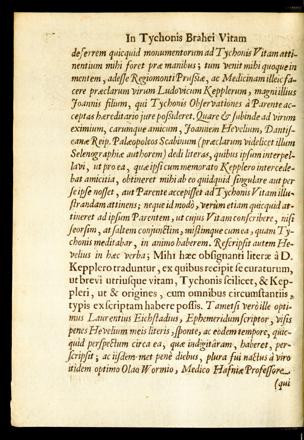 In Tychonis Brahei Vitam
deserrem quicquid monumentorum ad Tychonis Vitam atti-
nentium mihi foret præ manibus; tum venit mihi quoque in
mentem, adesse Regiomonti Prussiæ, ac Medicinam illeic fa-
cere præclarum virum Ludovicum Kepplerum, magni illius
Joannis filium, qui Tychonis Observationes à Parente ac-
ceptas hæreditario jure possideret. Quare & subinde ad virum
eximium, carumque amicum, Joannem Hevelium, Dantis-
canæ Reip. Palæopoleos Scabinum (præclarum videlicet illum
Selenographiæ authorem) dedi literas, quibus ipsum interpel-
lavi, ut pro ea, quæ ipsi cum memorato Kepplero intercede-
bat amicitia, obtineret mihi ab eo quidquid singulare aut per
se ipse nosset, aut Parente accepisset ad Tychonis Vitam illu-
strandam attinens; neque id modò, verùm etiam quicquid at-
tineret ad ipsum Parentem, ut cujus Vitam conscribere, nisi
seorsim, at saltem conjunctim, mistimque cum ea, quam Ty-
chonis meditabar, in animo haberem. Rescripsit autem He-
velius in hæc verba; Mihi hæc obsignanti literæ à D.
Kepplero traduntur, ex quibus recipit se curaturum,
ut brevi utriusque vitam, Tychonis scilicet, & Kep-
pleri, ut & origines, cum omnibus circumstantiis,
typis exscriptam habere possis. Tametsi verò ille opti-
mus Laurentius Eichstadius, Ephemeridum scriptor, visis
penes Hevelium meis literis, sponte, ac eodem tempore, quic-
quid perspectum circa ea, quæ indigitâram, haberet, per-
scripsit; ac iisdem met penè diebus, plura fui nactus à viro
itidem optimo Olao Wormio, Medico Hafniæ Professore
(qui